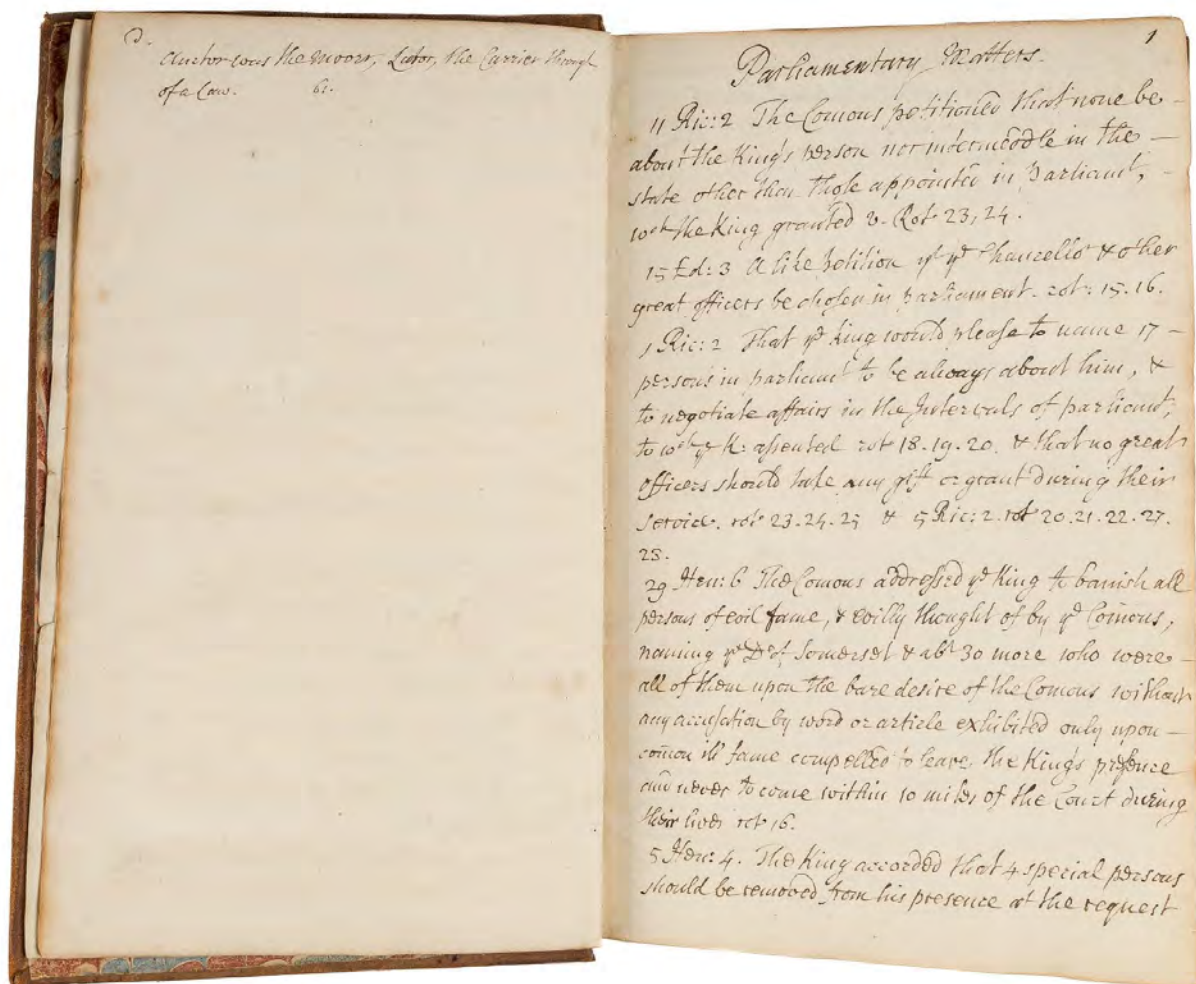 Auctor was the moover, Lator, the Carrier through
of a Law. 61.
1
Parliamentary Matters.
11 Ric: 2 The Comons petitioned that none be –
about the King's person nor intermeddle in the –
state other than those appointed in Parliamt, –
wch the King granted v. Rot 23, 24.
15 Ed: 3 A like petition yt ye Chancellor & other
great officers be chosen in parliament. rot: 15. 16.
1 Ric: 2 That ye King would please to name 17 –
persons in parliamt to be always about him, &
to negotiate affairs in the Intervals of parliamt,
to wch ye K: assented rot 18. 19. 20. & that no great
officers should take any gift or grant during their
service. rot 23. 24. 25 & 5 Ric: 2. rot 20. 21. 22. 27.
28.
29 Hen: 6 The Comons addressed ye King to banish all
persons of evil fame, & evilly thought of by ye Comons,
naming ye D: of Somerset & abt 30 more who were –
all of them upon the bare desire of the Comons without
any accusation by word or article exhibited only upon –
comon ill fame compelled to leave the King's presence
and never to come within 10 miles of the Court during
their lives rot 16.
5 Hen: 4. The King accorded that 4 special persons
should be removed from his presence at the request